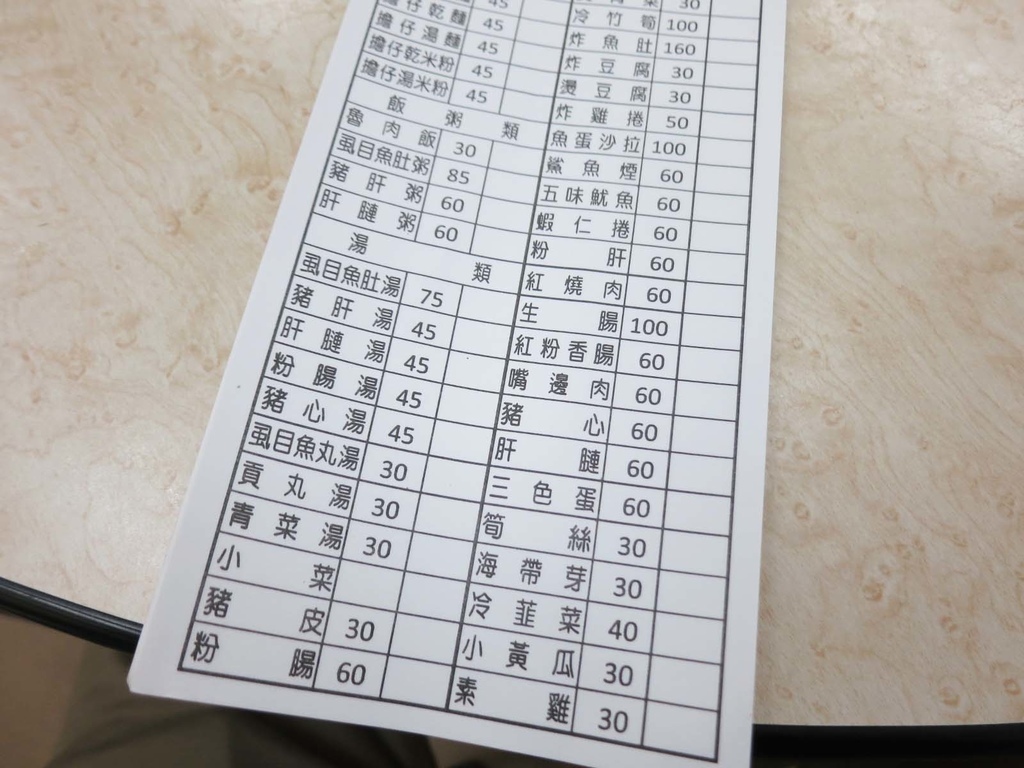 擔仔乾麵 45
擔仔湯麵 45
擔仔乾米粉 45
擔仔湯米粉 45
飯粥類
魯肉飯 30
虱目魚肚粥 85
豬肝粥 60
肝腱粥 60
湯類
虱目魚肚湯 75
豬肝湯 45
肝腱湯 45
粉腸湯 45
豬心湯 45
虱目魚丸湯 30
貢丸湯 30
青菜湯 30
小菜
豬皮 30
粉腸 60
菜 30
冷竹筍 100
炸魚肚 160
炸豆腐 30
燙豆腐 30
炸雞捲 50
魚蛋沙拉 100
鯊魚煙 60
五味魷魚 60
蝦仁捲 60
粉肝 60
紅燒肉 60
生腸 100
紅粉香腸 60
嘴邊肉 60
豬心 60
肝腱 60
三色蛋 60
筍絲 30
海帶芽 30
冷韮菜 40
小黃瓜 30
素雞 30